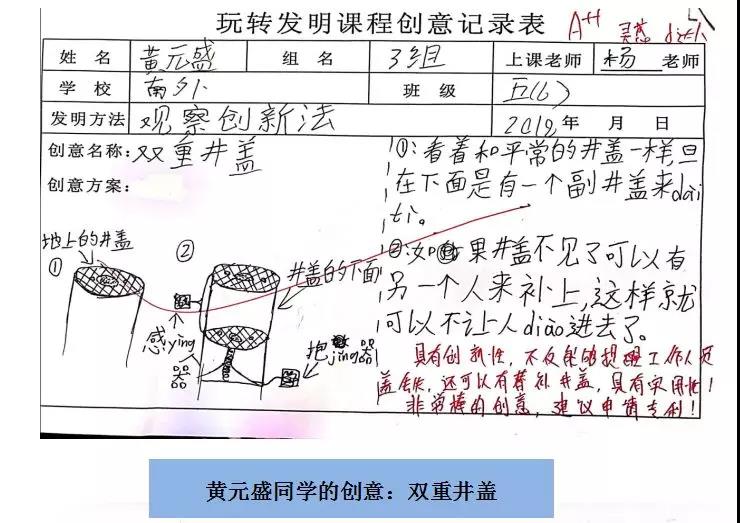 玩转发明课程创意记录表
A++
姓 名 黄元盛 组 名 3组 上课老师 杨 老师
学 校 南外 班 级 五(6)
发明方法 观察创新法 2019年 月 日
创意名称:双重井盖
创意方案:
①:看着和平常的井盖一样,旦
在下面是有一个副井盖来dai
ti。
②:如果井盖不见了可以有
另一个人来补上,这样就
可以不让人diào进去了。
地上的井盖
①
②
井盖的下面
感ying器
抱jing器
具有创新性,不仅能够提醒工作人员
盖丢失,还可以有替补井盖,具有实用性!
非常棒的创意,建议申请专利!
黄元盛同学的创意:双重井盖